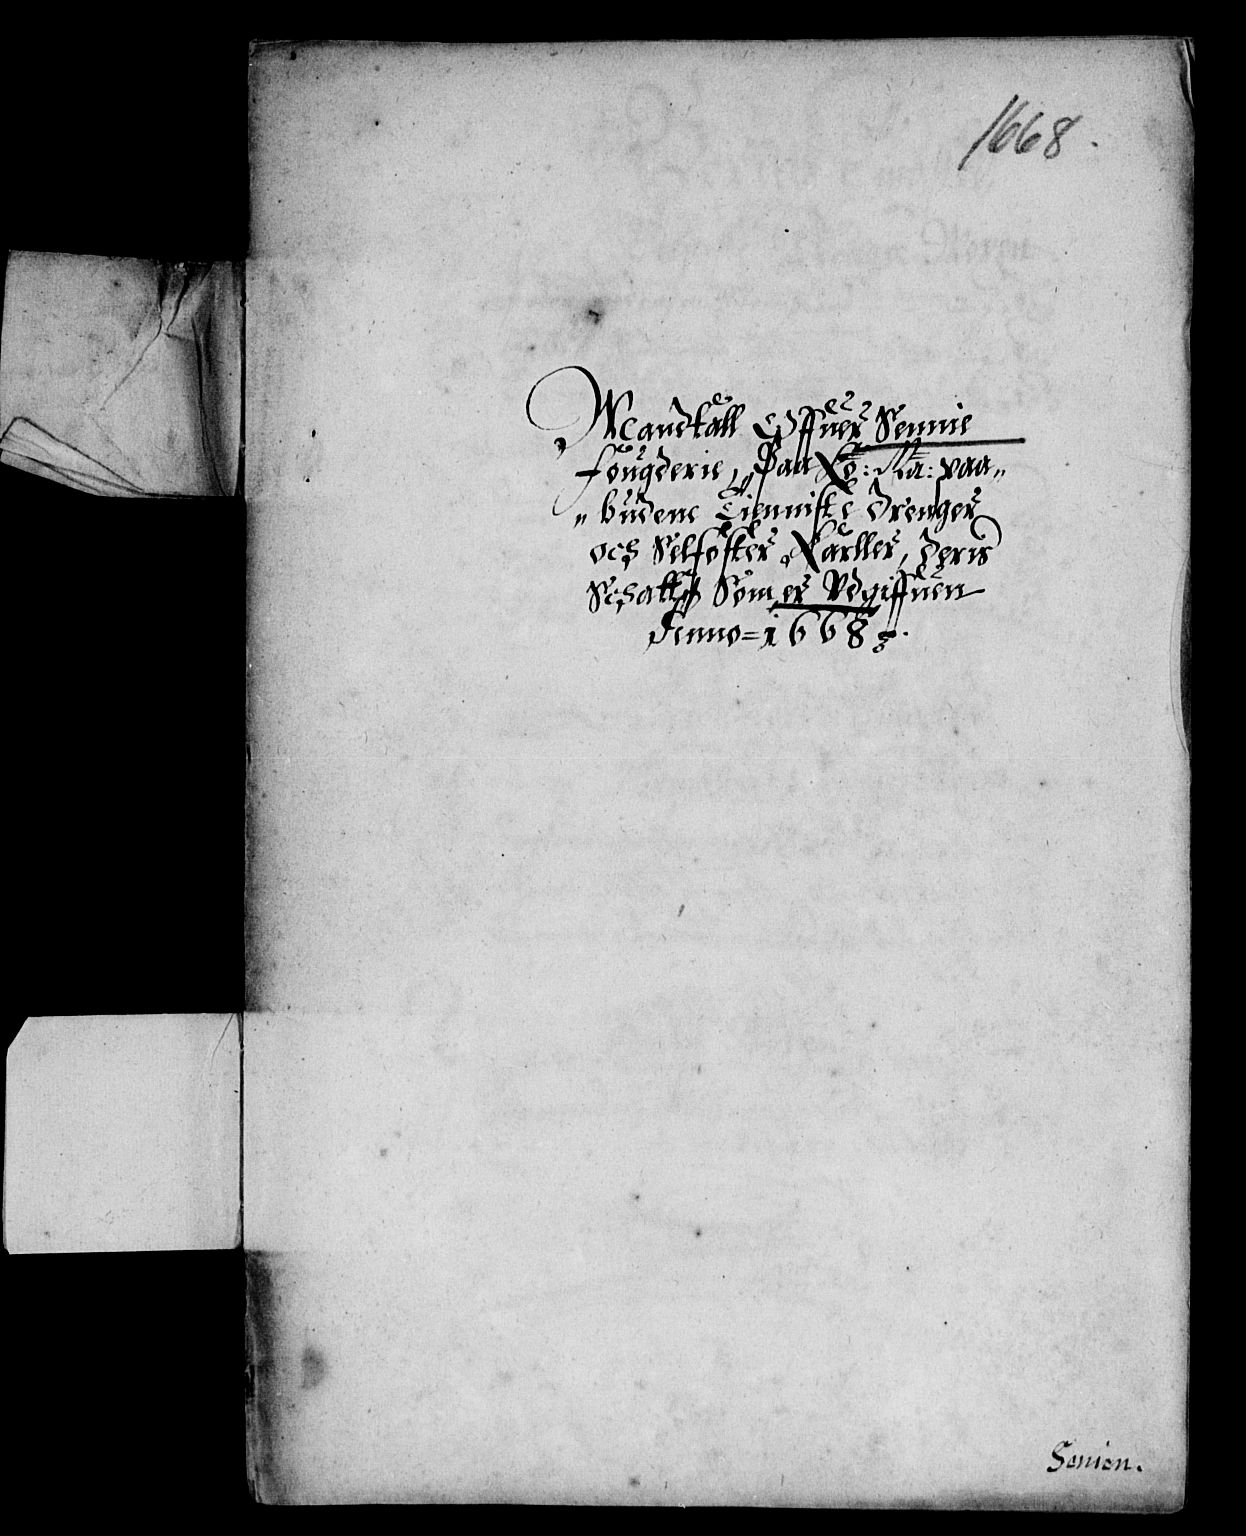 1668.
Mandtall Offuer Sennie
fougderie, Paa Ko: Ma: paa„
„budene Tienniste Drenger
och Selfoster Karller, Deris
Schatt Som er Vdgiffuen
Anno=1668
Senien.